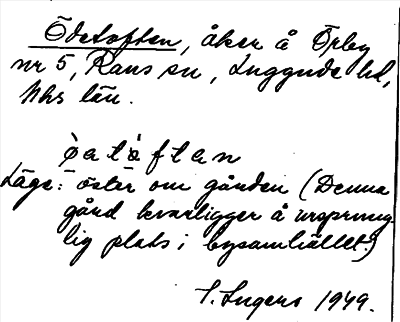 Ödetoften, åker å Örby
nr 5, Raus sn, Luggude hd,
Mhs län.
ø̀atàftan
Läge: öster om gården (Denna
gård kvarligger å ursprung
lig plats i bysamhället.)
S. Ingers 1949.